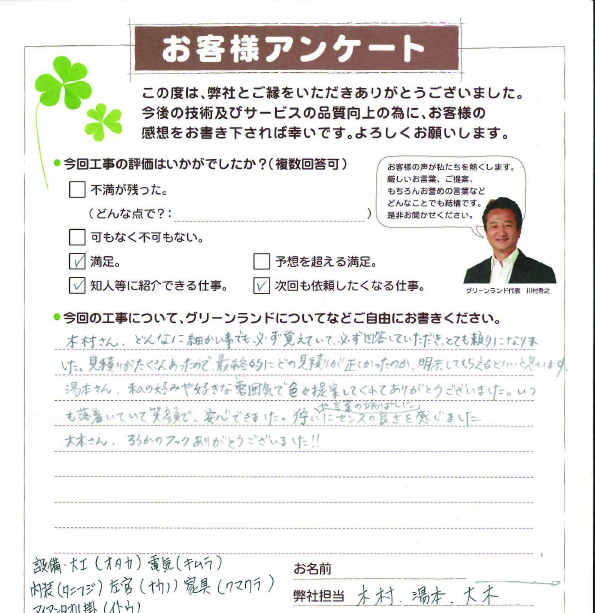 お客様アンケート
この度は、弊社とご縁をいただきありがとうございました。
今後の技術及びサービスの品質向上の為に、お客様の
感想をお書き下されば幸いです。よろしくお願いします。
今回工事の評価はいかがでしたか?(複数回答可)
不満が残った。
(どんな点で?: )
可もなく不可もない。
満足。 予想を超える満足。
知人等に紹介できる仕事。 次回も依頼したくなる仕事。
お客様の声が私たちを熱くします。
厳しいお言葉、ご提案、
もちろんお誉めの言葉など
どんなことでも結構です。
是非お聞かせください。
グリーンランド代表 川村秀之
今回の工事について、グリーンランドについてなどご自由にお書きください。
木村さん、どんなに細かい事でも、必ず覚えていて、必ず回答していただき、とても頼りになりま
した。見積りがたくさんあったので、最終的にどの見積りが正しかったのか、明示してもらえるといいと思います。
湯本さん、私の好みや好きな雰囲気で色々提案してくれてありがとうございました。いつ
も落着いていて笑顔で、安心できました。
センスの良さを感じました
大木さん、 フックありがとうございました!!
設備・大工(オタカ) 電気(キムラ)
内装(タニフジ) 左官(ナカノ) 家具(クマクラ)
お名前
弊社担当 木村、湯本、大木